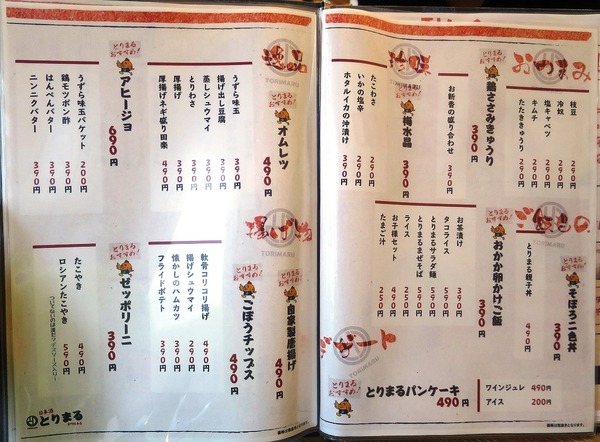 おつまみ
枝豆 290円
冷奴 290円
塩キャベツ 290円
キムチ 290円
たたききゅうり 290円
とりまるおすすめ!
鶏ささみきゅうり 390円
お新香の盛り合わせ 390円
珍味
とりまるおすすめ!
梅水晶 390円
たこわさ 290円
いかの塩辛 290円
ホタルイカの沖漬け 390円
とりまるおすすめ!
そぼろ二色丼 390円
とりまる親子丼 490円
とりまるおすすめ!
おかか卵かけご飯 390円
お茶漬け 390円
タコライス 590円
とりまるサラダ麺 590円
とりまるまぜそば 590円
ライス 200円
お子様セット 450円
たまご汁 250円
とりまるおすすめ!
とりまるパンケーキ 490円
ワインジュレ 490円
アイス 200円
逸品
とりまるおすすめ!
オムレツ 490円
うずら味玉 390円
揚げ出し豆腐 390円
蒸しシュウマイ 390円
とりわさ 390円
厚揚げ 390円
厚揚げネギ盛り田楽 490円
とりまるおすすめ!
アヒージョ 690円
うずら味玉バケット 200円
鶏モツポン酢 390円
はんぺんバター 390円
ニンニクバター 390円
揚げ物
とりまるおすすめ!
自家製唐揚げ 490円
とりまるおすすめ!
ごぼうチップス 490円
軟骨コリコリ揚げ 490円
揚げシュウマイ 290円
懐かしのハムカツ 390円
フライドポテト 390円
とりまるおすすめ!
ゼッポリーニ 390円
たこやき 490円
ロシアンたこやき 590円
日本酒
とりまる